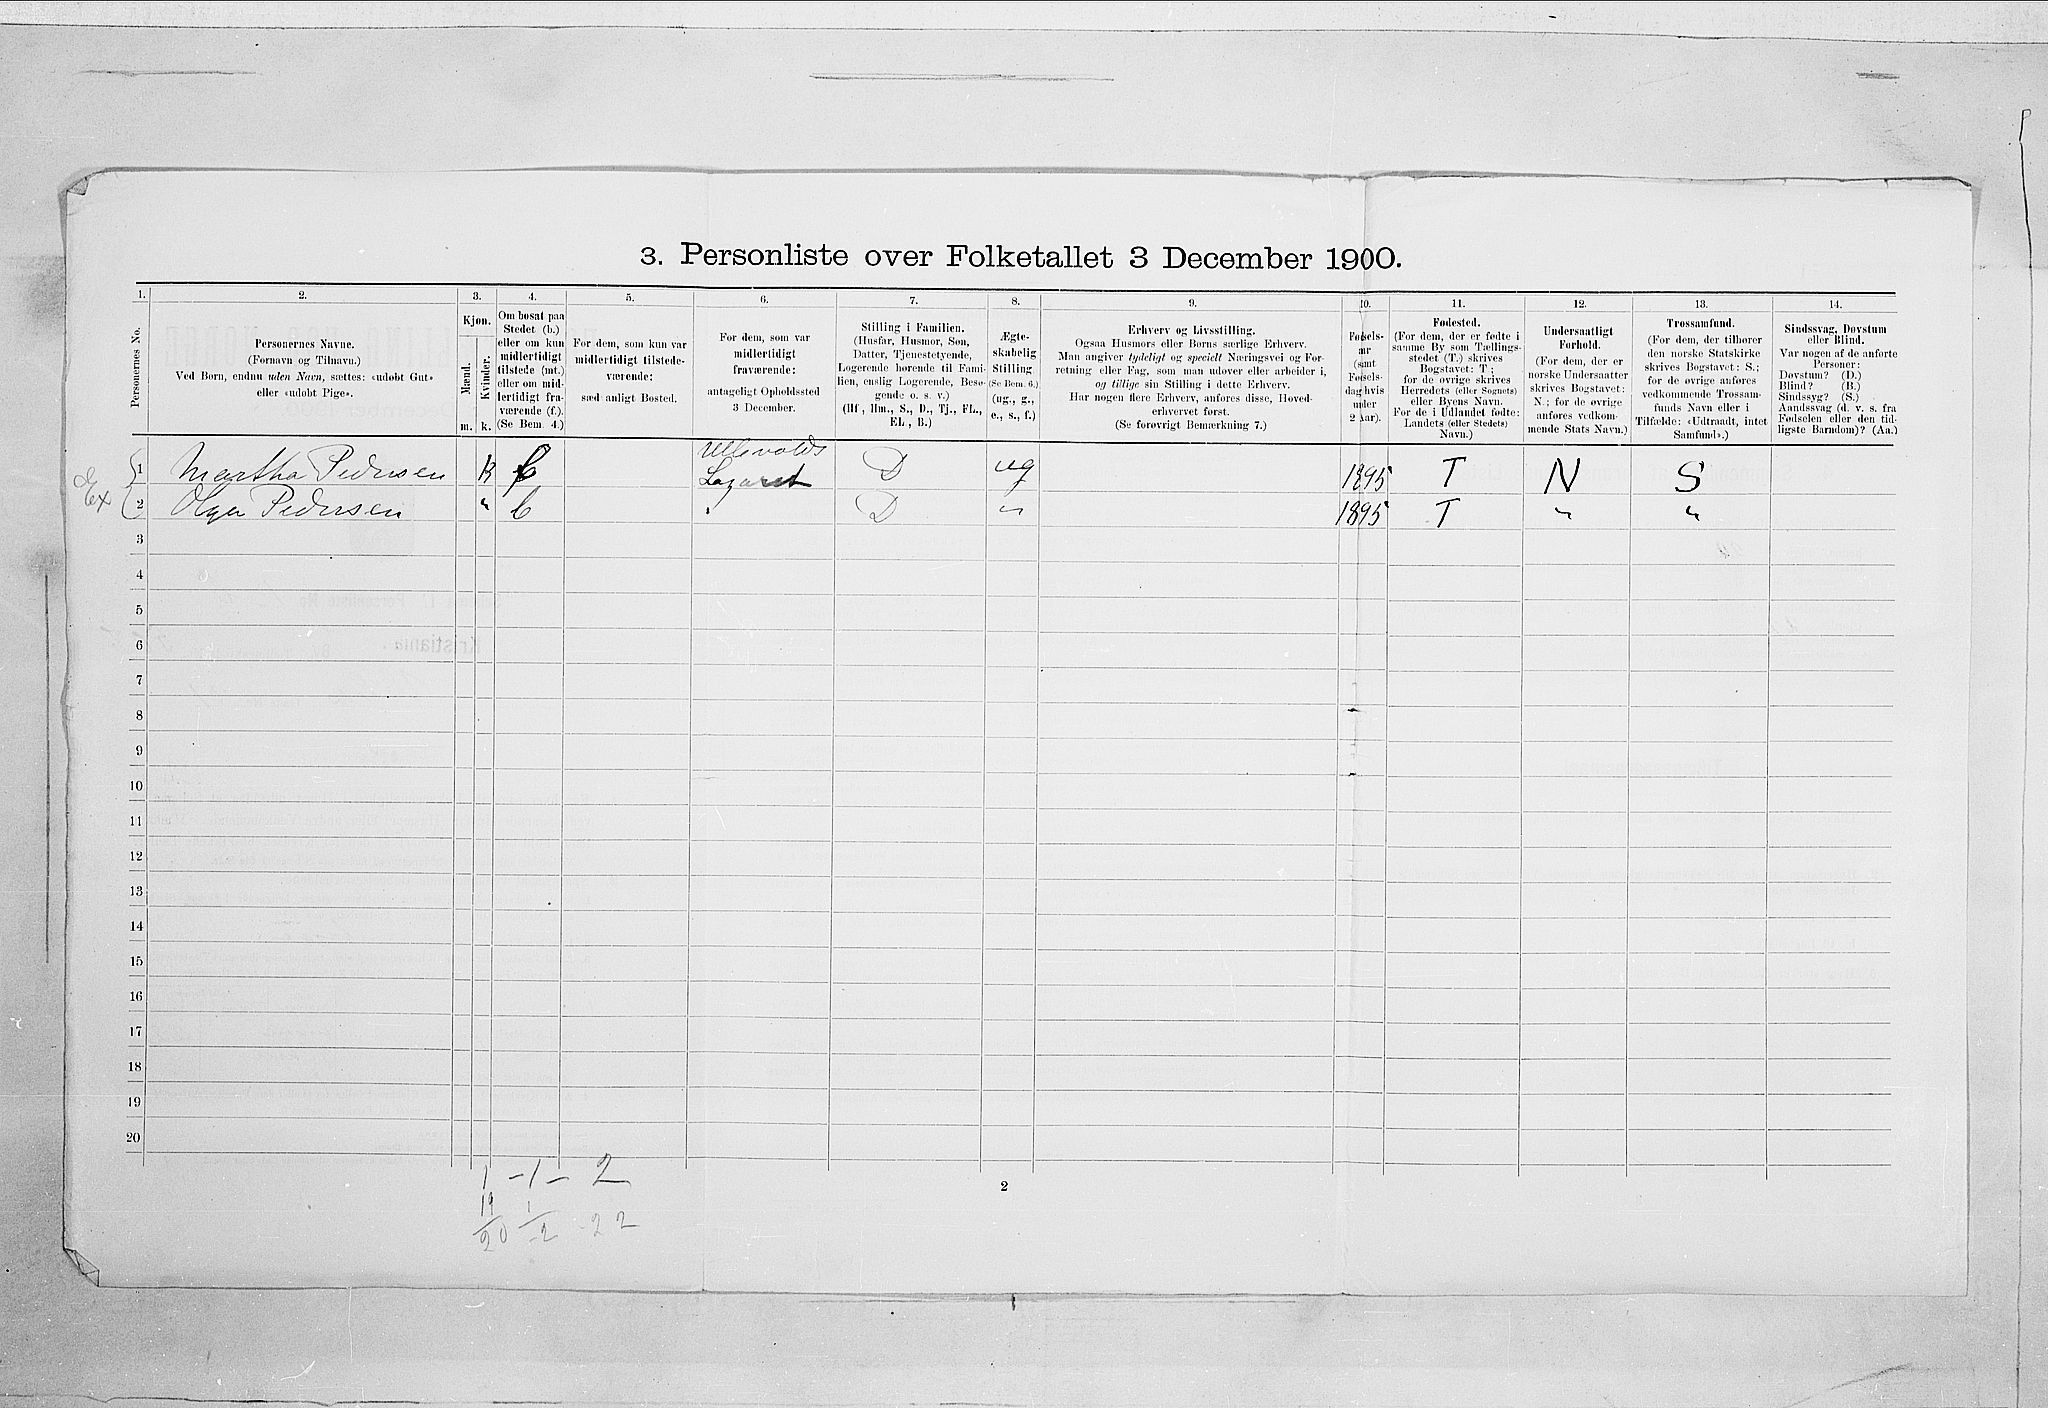 3. Personliste over Folketallet 3 December 1900.
1. 2. 3. 4. 5. 6. 7. 8. 9. 10. 11. 12. 13. 14.
Personernes No.
Personernes Navne.
(Fornavn og Tilnavn.)
Ved Børn, endnu uden Navn, sættes: «udøbt Gut»
eller «udøbt Pige».
Kjøn.
Mænd.
Kvinder.
m. k.
Om bosat paa
Stedet (b.)
eller om kun
midlertidigt
tilstede (mt.)
eller om mid-
lertidigt fra-
værende (f.).
(Se Bem. 4.)
For dem, som kun var
midlertidigt tilstede-
værende:
sædvanligt Bosted.
For dem, som var
midlertidigt
fraværende:
antageligt Opholdssted
3 December.
Stilling i Familien.
(Husfar, Husmor, Søn,
Datter, Tjenestetyende,
Logerende hørende til Fami-
lien, enslig Logerende, Besø-
gende o. s. v.)
(Hf., Hm., S., D., Tj., FL.,
EL., B.)
Ægte-
skabelig
Stilling.
(Se Bem. 6.)
(ug., g.,
e., s., f.)
Erhverv og Livsstilling.
Ogsaa Husmors eller Børns særlige Erhverv.
Man angiver tydeligt og specielt Næringsvei og For-
retning eller Fag, som man udøver eller arbeider i,
og tillige sin Stilling i dette Erhverv.
Har nogen flere Erhverv, anføres disse, Hoved-
erhvervet først.
(Se forøvrigt Bemærkning 7.)
Fødsels-
aar
(samt
Fødsels-
dag hvis
under
2 Aar).
Fødested.
(For dem, der er fødte i
samme By som Tællings-
stedet (T.) skrives
Bogstavet: T;
for de øvrige skrives
Herredets (eller Sognets)
eller Byens Navn.
For de i Udlandet fødte:
Landets (eller Stedets)
Navn.)
Undersaatligt
Forhold.
(For dem, der er
norske Undersaatter
skrives Bogstavet:
N.; for de øvrige
anføres vedkom-
mende Stats Navn.)
Trossamfund.
(For dem, der tilhører
den norske Statskirke
skrives Bogstavet: S.;
for de øvrige anføres
vedkommende Trossam-
funds Navn eller i
Tilfælde: «Udtraadt, intet
Samfund».)
Sindssvag, Døvstum
eller Blind.
Var nogen af de anførte
Personer:
Døvstum? (D.)
Blind? (B.)
Sindssyg? (S.)
Aandssvag (d. v. s. fra
Fødselen eller den tid-
ligste Barndom)? (Aa.)
1 Martha Pedersen K b Ullevolds Lazaret D ug 1895 T N S
2 Olga Pedersen " b " D " 1895 T " "
3
4
5
6
7
8
9
10
11
12
13
14
15
16
17
18
19
20
1 - 1 - 2
19 1
20 - 2 22
2